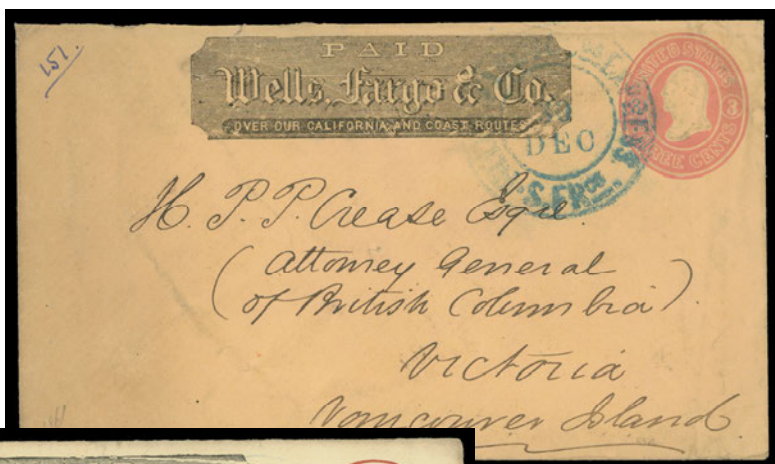 151.
PAID
Wells, Fargo & Co.
OVER OUR CALIFORNIA AND COAST ROUTES
DEC
S. FRco
UNITED STATES
3
THREE CENTS
H. P. P. Crease Esqre.
(Attorney General
of British Columbia)
Victoria
Vancouver Island